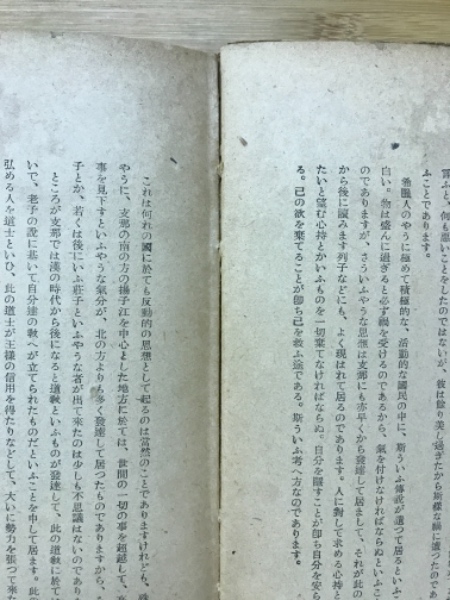 ふと、何も悪いことをしたのではないが、彼は餘り美し過ぎたから斯様な禍に遭つたのであ
ふことであります。
希臘人のやうに極めて積極的な、活動的な國民の中に、斯ういふ傳説が遺つて居るといふ
白い。物は盛んに過ぎると必ず禍を受けるのであるから、氣を付けなければならぬといふこ
のでありますが、さういふやうな思想は支那にも亦早くから發達して居まして、それが此の
から後に顕みます列子などにも、よく現はれて居るのであります。人に對して求める心持と
たいと望む心持とかいふものを一切棄てなければならぬ。自分を虧すことが卽ち自分を安ら
る。己の欲を棄てることが卽ち己を救ふ途である。斯ういふ考へ方なのであります。
これは何れの國に於ても反動的の思想として起るのは當然のことでありますけれども、
やうに、支那の南の方の揚子江を中心とした地方に於ては、世間の一切の事を超越して、
事を見下すといふやうな氣分が、北の方よりも多く發達して居つたものでありますから、
子とか、若くは後にいふ莊子といふやうな者が出て來たのは少しも不思議はないのであり
ところが支那では漢の時代から後になると道敎といふものが發達して、此の道敎に於て
いで、老子の說に基いて自分達の敎へが立てられたものだといふことを申して居ます。此
弘める人を道士といひ、此の道士が王様の信用を得たりなどして、大いに勢力を張つて來